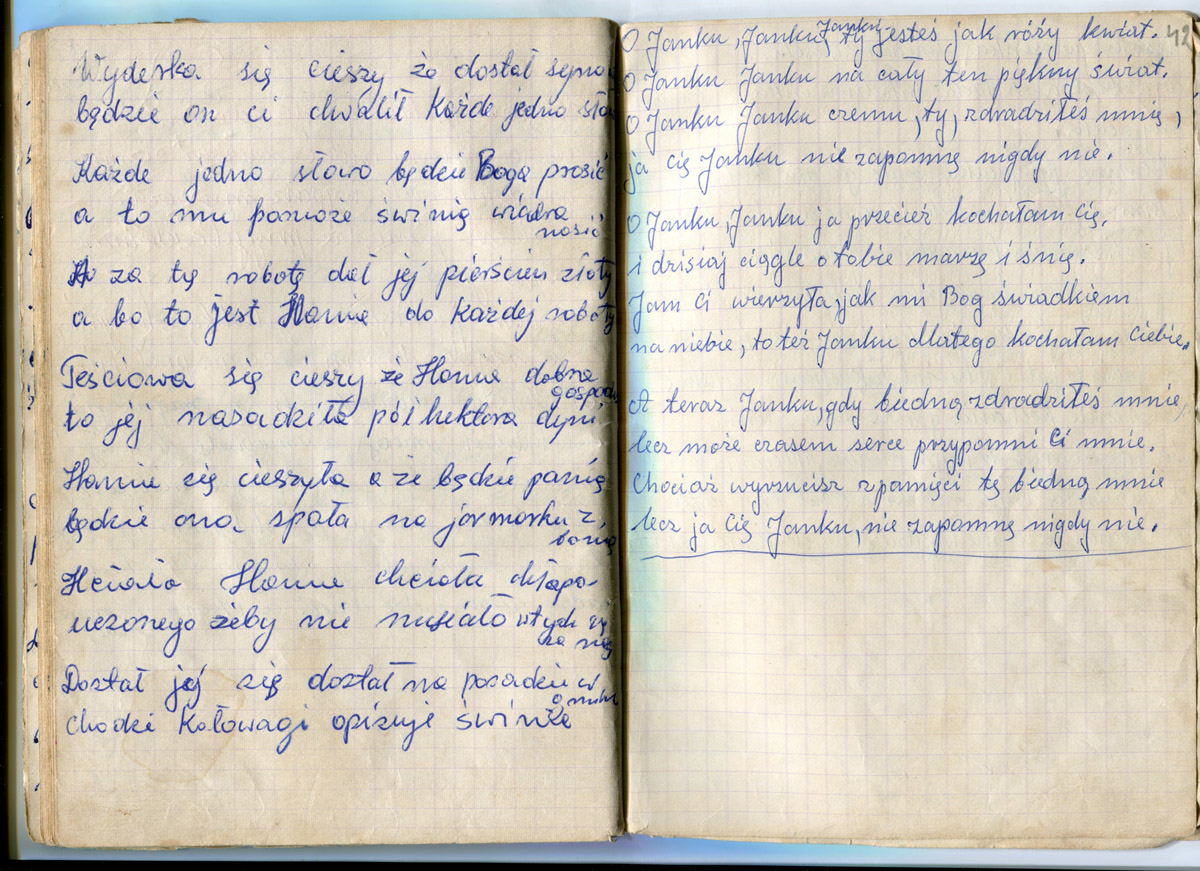 Wyderka się cieszy że dostał syna
będzie on ci chwalił każde jedno
Każde jedno słowo będzie Boga prosić
a to mu pomoże świnią wiadra
nosić
A za tę robotę dał jej pierścień złoty
a bo to jest Hania do każdej roboty
Teściowa się cieszy że Hania dobra
to jej nasadziła pół hektora dyni
Hania się cieszyła a że będzie panią
będzie ona spała na jarmarku z
Hciała Hania chciała chłapa
uczonego żeby nie musiało wtych
za nią
Dostał jej się dostał na posadzie w
chodzi koło wagi opisuje świnie
42
O Janku, Janku, Janku ty jesteś jak róży kwiat.
O Janku Janku na cały ten piękny świat.
O Janku Janku czemu, ty, zdradziłeś mnię,
ja cię Janku nie zapomnę nigdy nie.
O Janku, Janku ja przecież kochałam Cię,
i dzisiaj ciągle o tobie marzę i śnię.
Jam Ci wierzyła, jak mi Bog świadkiem
na niebie, to też Janku dlatego kochałam Ciebie.
A teraz Janku, gdy biedną zdradziłeś mnie,
lecz może czasem serce przypomni Ci mnie.
Chociaż wyrzucisz z pamięci tę biedną mnie
lecz ja Cię Janku, nie zapomnę nigdy nie.